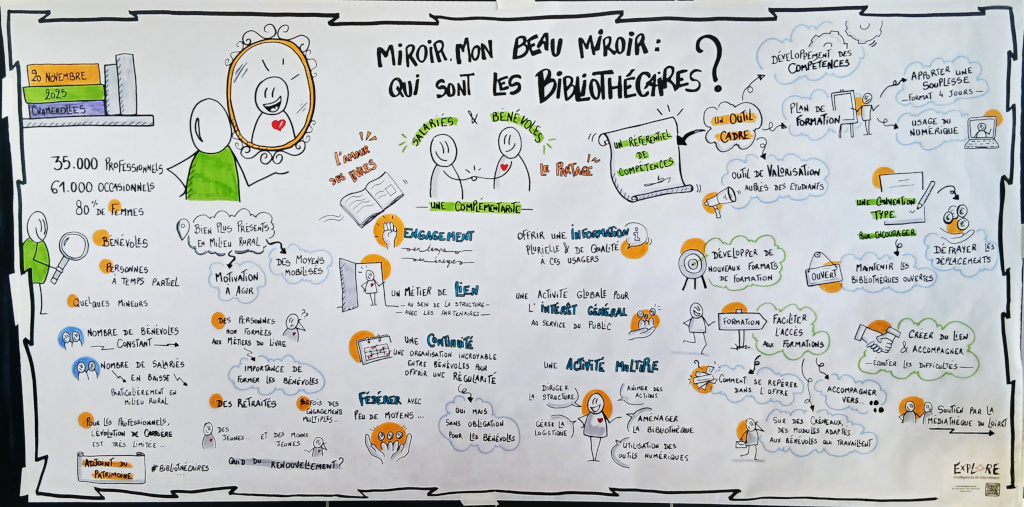 MIROIR, MON BEAU MIROIR :
QUI SONT LES BIBLIOTHÉCAIRES ?
20 NOVEMBRE
2025
CHAMEROLLES
35.000 PROFESSIONNELS
61.000 OCCASIONNELS
80% DE FEMMES
BÉNÉVOLES
PERSONNES
À TEMPS PARTIEL
QUELQUES MINEURS
BIEN PLUS PRÉSENTS
EN MILIEU RURAL
MOTIVATION
À AGIR
DES MOYENS
MOBILISÉS
NOMBRE DE BÉNÉVOLES
CONSTANT
NOMBRE DE SALARIÉS
EN BAISSE
PARTICULIÈREMENT EN
MILIEU RURAL
POUR LES PROFESSIONNELS,
L'ÉVOLUTION DE CARRIÈRE
EST TRÈS LIMITÉE ...
ADJOINT DU
PATRIMOINE
#BIBLIOTHÉCAIRES
DES PERSONNES
NON FORMÉES
AUX MÉTIERS DU LIVRE
?
IMPORTANCE DE
FORMER LES BÉNÉVOLES
DES RETRAITÉS
PARFOIS DES
ENGAGEMENTS
MULTIPLES...
DES
JEUNES...
ET DES MOINS
JEUNES
QUID DU RENOUVELLEMENT ?
L'AMOUR
DES LIVRES
SALARIÉS & BÉNÉVOLES
UNE COMPLÉMENTARITÉ
LE PARTAGE
ENGAGEMENT
UN MÉTIER DE LIEN
AU SEIN DE LA STRUCTURE
AVEC LES PARTENAIRES
UNE CONTINUITÉ
UNE ORGANISATION INCROYABLE
ENTRE BÉNÉVOLES POUR
OFFRIR UNE RÉGULARITÉ
FÉDÉRER AVEC
PEU DE MOYENS ...
OUI MAIS
SANS OBLIGATION
POUR LES BÉNÉVOLES
OFFRIR UNE INFORMATION
PLURIELLE & DE QUALITÉ
À CES USAGERS
UNE ACTIVITÉ GLOBALE POUR
L'INTÉRÊT GÉNÉRAL
AU SERVICE DU PUBLIC
UNE ACTIVITÉ MULTIPLE
DIRIGER
LA STRUCTURE
GÉRER LA
LOGISTIQUE
ANIMER DES
ACTIONS
AMÉNAGER
LA BIBLIOTHÈQUE
UTILISATION DES
OUTILS NUMÉRIQUES
UN RÉFÉRENTIEL
DE
COMPÉTENCES
UN OUTIL
CADRE
DÉVELOPPEMENT DES
COMPÉTENCES
PLAN DE
FORMATION
APPORTER UNE
SOUPLESSE
FORMAT 4 JOURS
USAGE DU
NUMÉRIQUE
OUTIL DE VALORISATION
AUPRÈS DES ÉTUDIANTS
UNE CONVENTION
TYPE
POUR ENCOURAGER
DÉFRAYER LES
DÉPLACEMENTS
DÉVELOPPER DE
NOUVEAUX FORMATS
DE FORMATION
OUVERT
MAINTENIR LES
BIBLIOTHÈQUES OUVERTES
FORMATION
FACILITER
L'ACCÈS
AUX FORMATIONS
CRÉER DU LIEN
& ACCOMPAGNER
ÉCOUTER LES DIFFICULTÉS
COMMENT SE REPÉRER
DANS L'OFFRE
ACCOMPAGNER
VERS...
SUR DES CRÉNEAUX,
DES MODULES ADAPTÉS
AUX BÉNÉVOLES QUI TRAVAILLENT
SOUTIEN PAR LA
MÉDIATHÈQUE DU LOIRET
EXPLORE